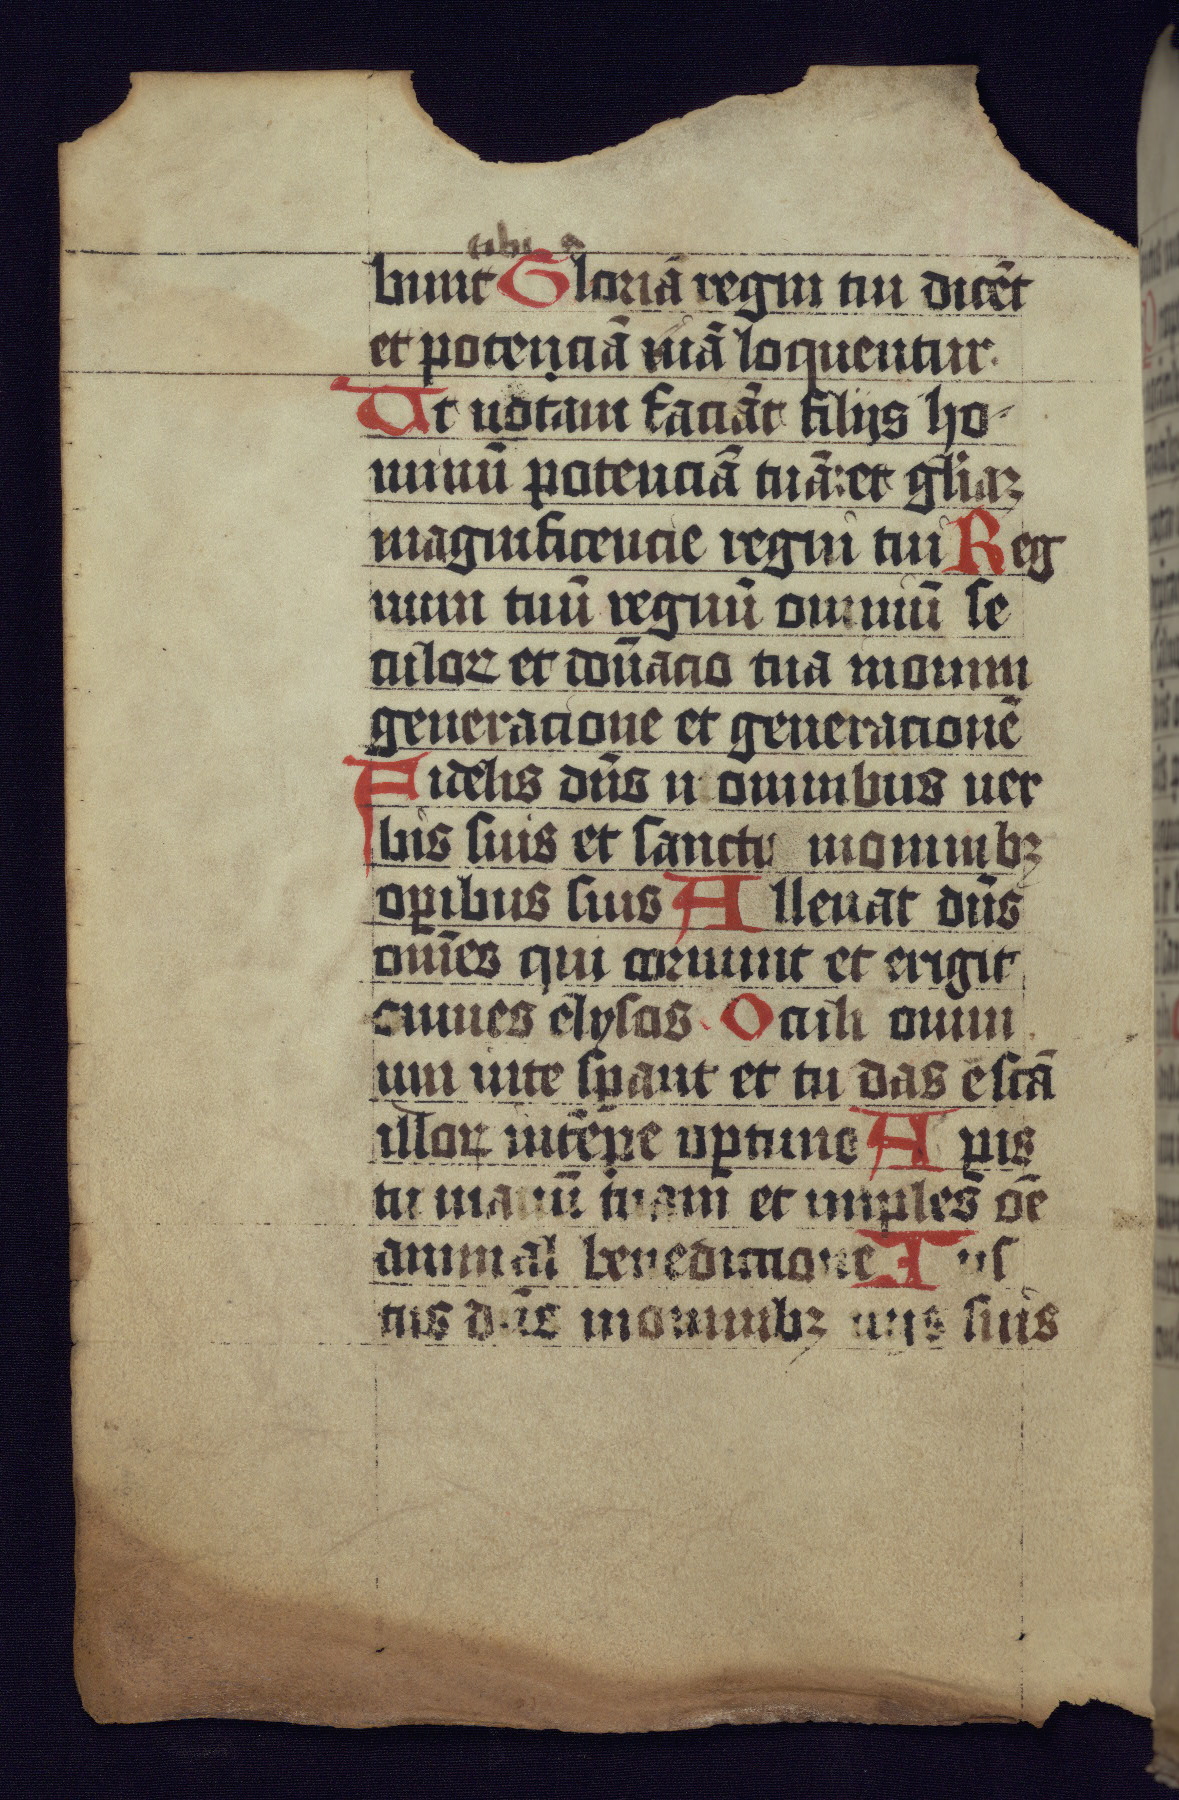 tibi
bunt Gloriā regni tui dicēt
et potenciā tuā loquentur.
Ut notam faciāt filijs ho-
minū potenciā tuā: et gl̄iaꝫ
magnificencie regni tui Reg
num tuū regnū omniū se
culoꝝ et dn̄acio tua in omni
generacione et generacionē
Fidelis dn̄s in omnibus ver
bis suis et sanctus in omnibꝫ
oꝑibus suis Alleuat dn̄s
omēs qui corruunt et erigit
omnes elysos Oculi omni
um in te sꝑant et tu das escā
illoꝝ in tēꝑe oportuno Apis
tu manū tuam et imples oē
animal benedictione Ius
tus dn̄s in omnibꝫ uijs suis